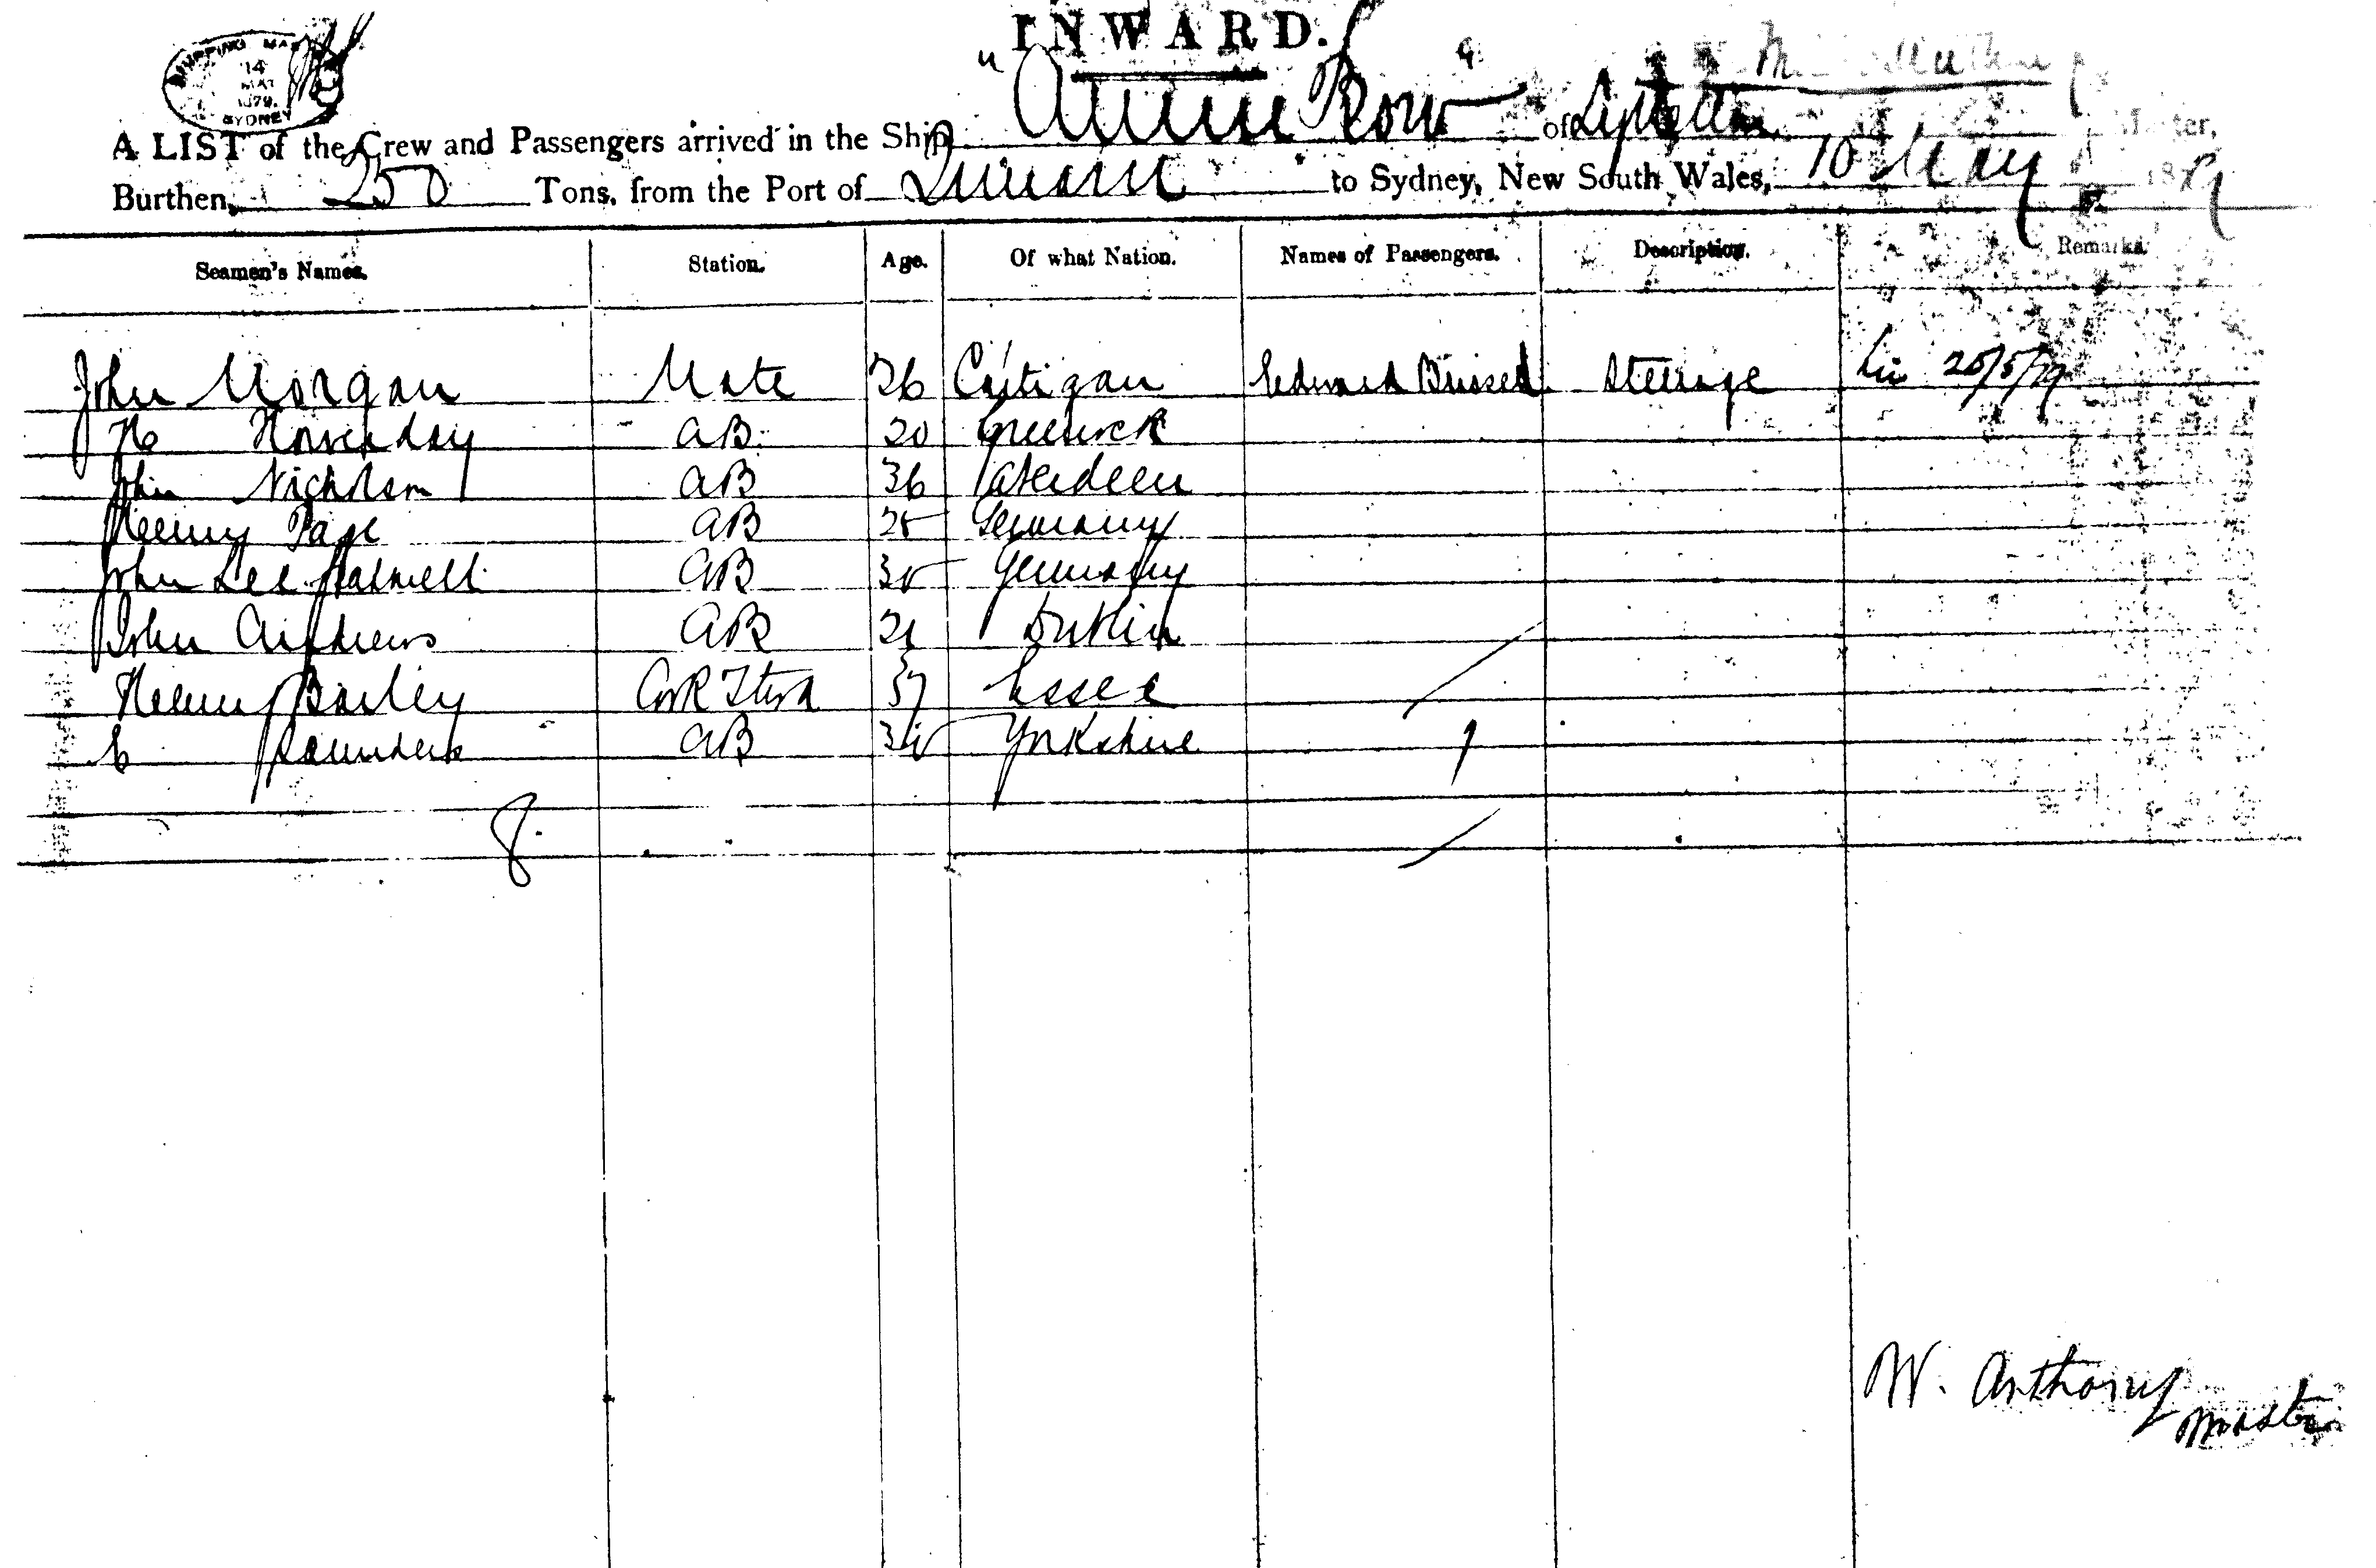 INWARD.
SHIPPING MAS
14
MAY
1879.
SYDNEY
A LIST of the Crew and Passengers arrived in the Ship "Annie Row" of
Burthen, 250 Tons, from the Port of to Sydney, New South Wales, 10 May 1879
Seamen's Names. Station. Age. Of what Nation. Names of Passengers. Description. Remarks.
John Morgan Mate 26 Cartigan Edward Steerage 25/5/79
AB 20
John Nicholson AB 36 Aberdeen
Henry Page AB 25 Germany
John Lee AB 35 Germany
John Andrews AB 21 Dublin
Henry Barley Cook Stwd 37 Essex
E Saunders AB Yorkshire
1
8
W. Anthony
Master